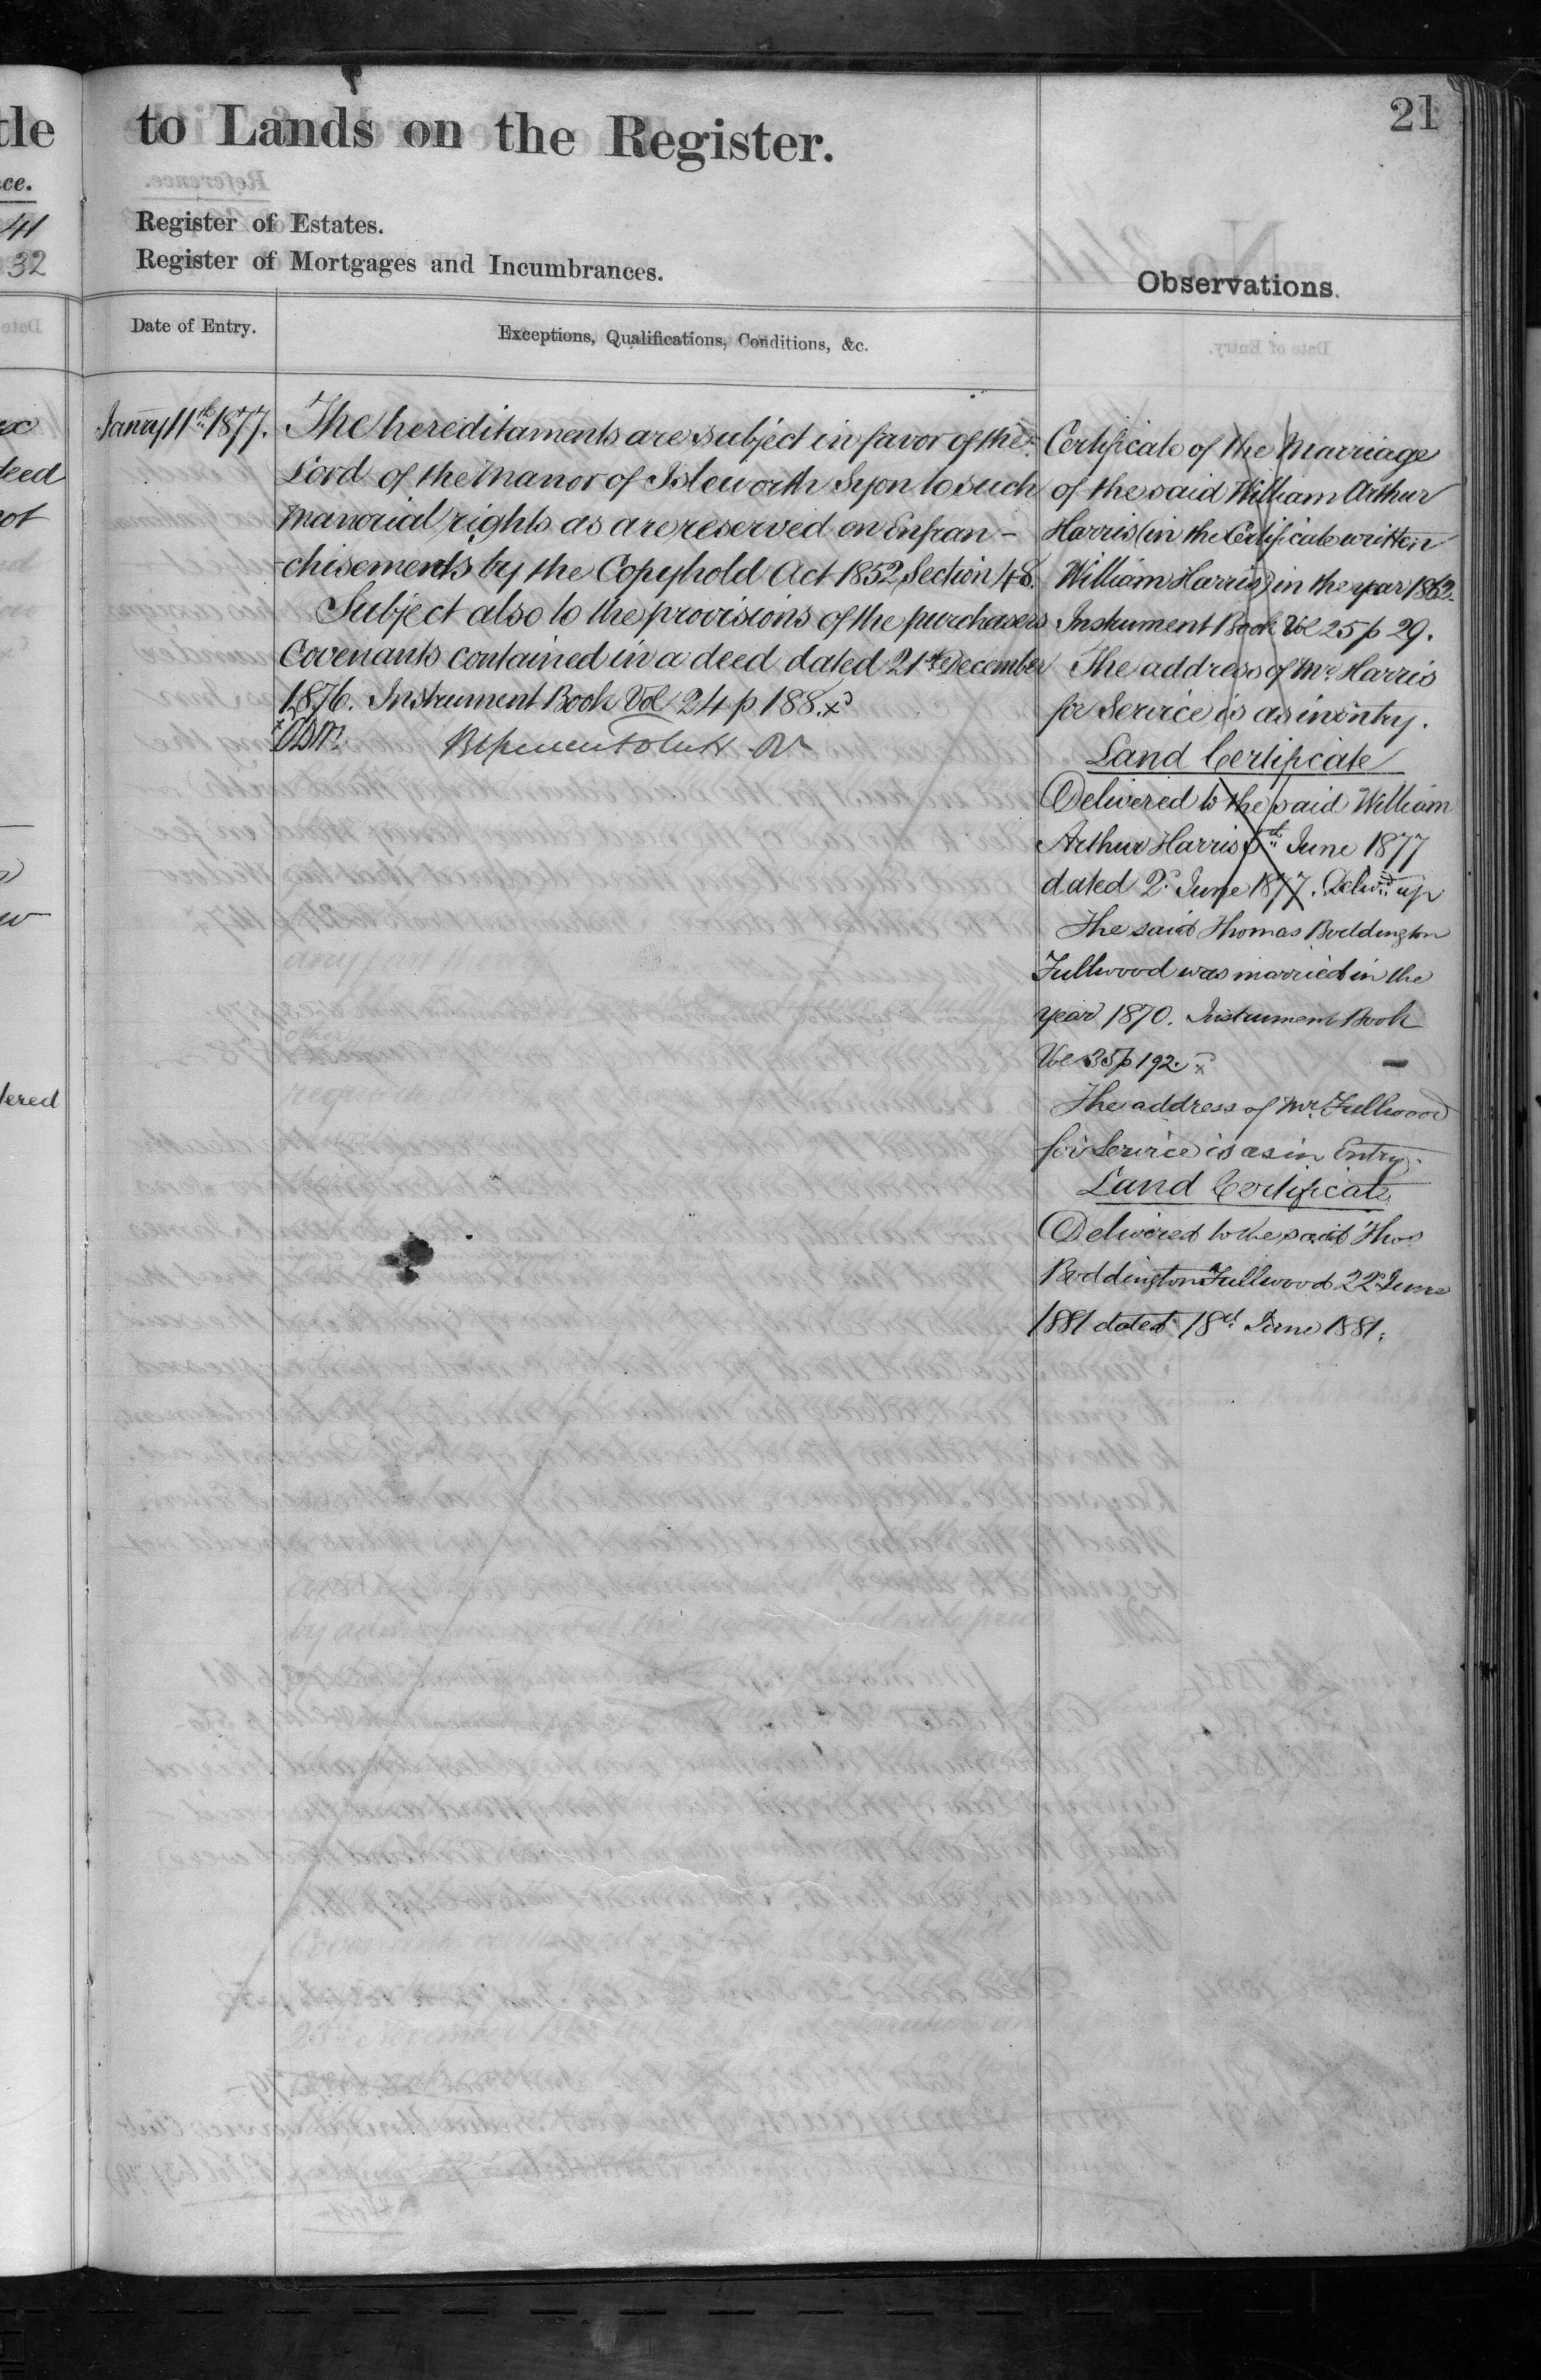 tle
ce.
41
32
deed
not
dered
to Lands on the Register.
21
Register of Estates.
Register of Mortgages and Incumbrances.
Observations.
Date of Entry.
Exceptions, Qualifications, Conditions, &c.
Janry 11th 1877.
The hereditaments are subject in favor of the
Lord of the Manor of Isleworth Syon to such
manorial rights as are reserved on Enfran-
chisements by the Copyhold Act 1852, Section 48.
Subject also to the provisions of the purchasers
Covenants contained in a deed dated 21st December
1876. Instrument Book Vol 24 p 188.
Certificate of the Marriage
of the said William Arthur
Harris (in the Certificate written
William Harris) in the year 1862.
Instrument Book Vol 25 p 29.
The address of Mr. Harris
for Service is as in entry.
Land Certificate
Delivered to the said William
Arthur Harris 5th June 1877
dated 2d June 1877. Delivd up
The said Thomas Boddington
Fullwood was married in the
year 1870. Instrument Book
Vol 35 p 192.
The address of Mr. Fullwood
for Service is as in Entry.
Land Certificate
Delivered to the said Thos
Boddington Fullwood 22d June
1881 dated 18th June 1881.